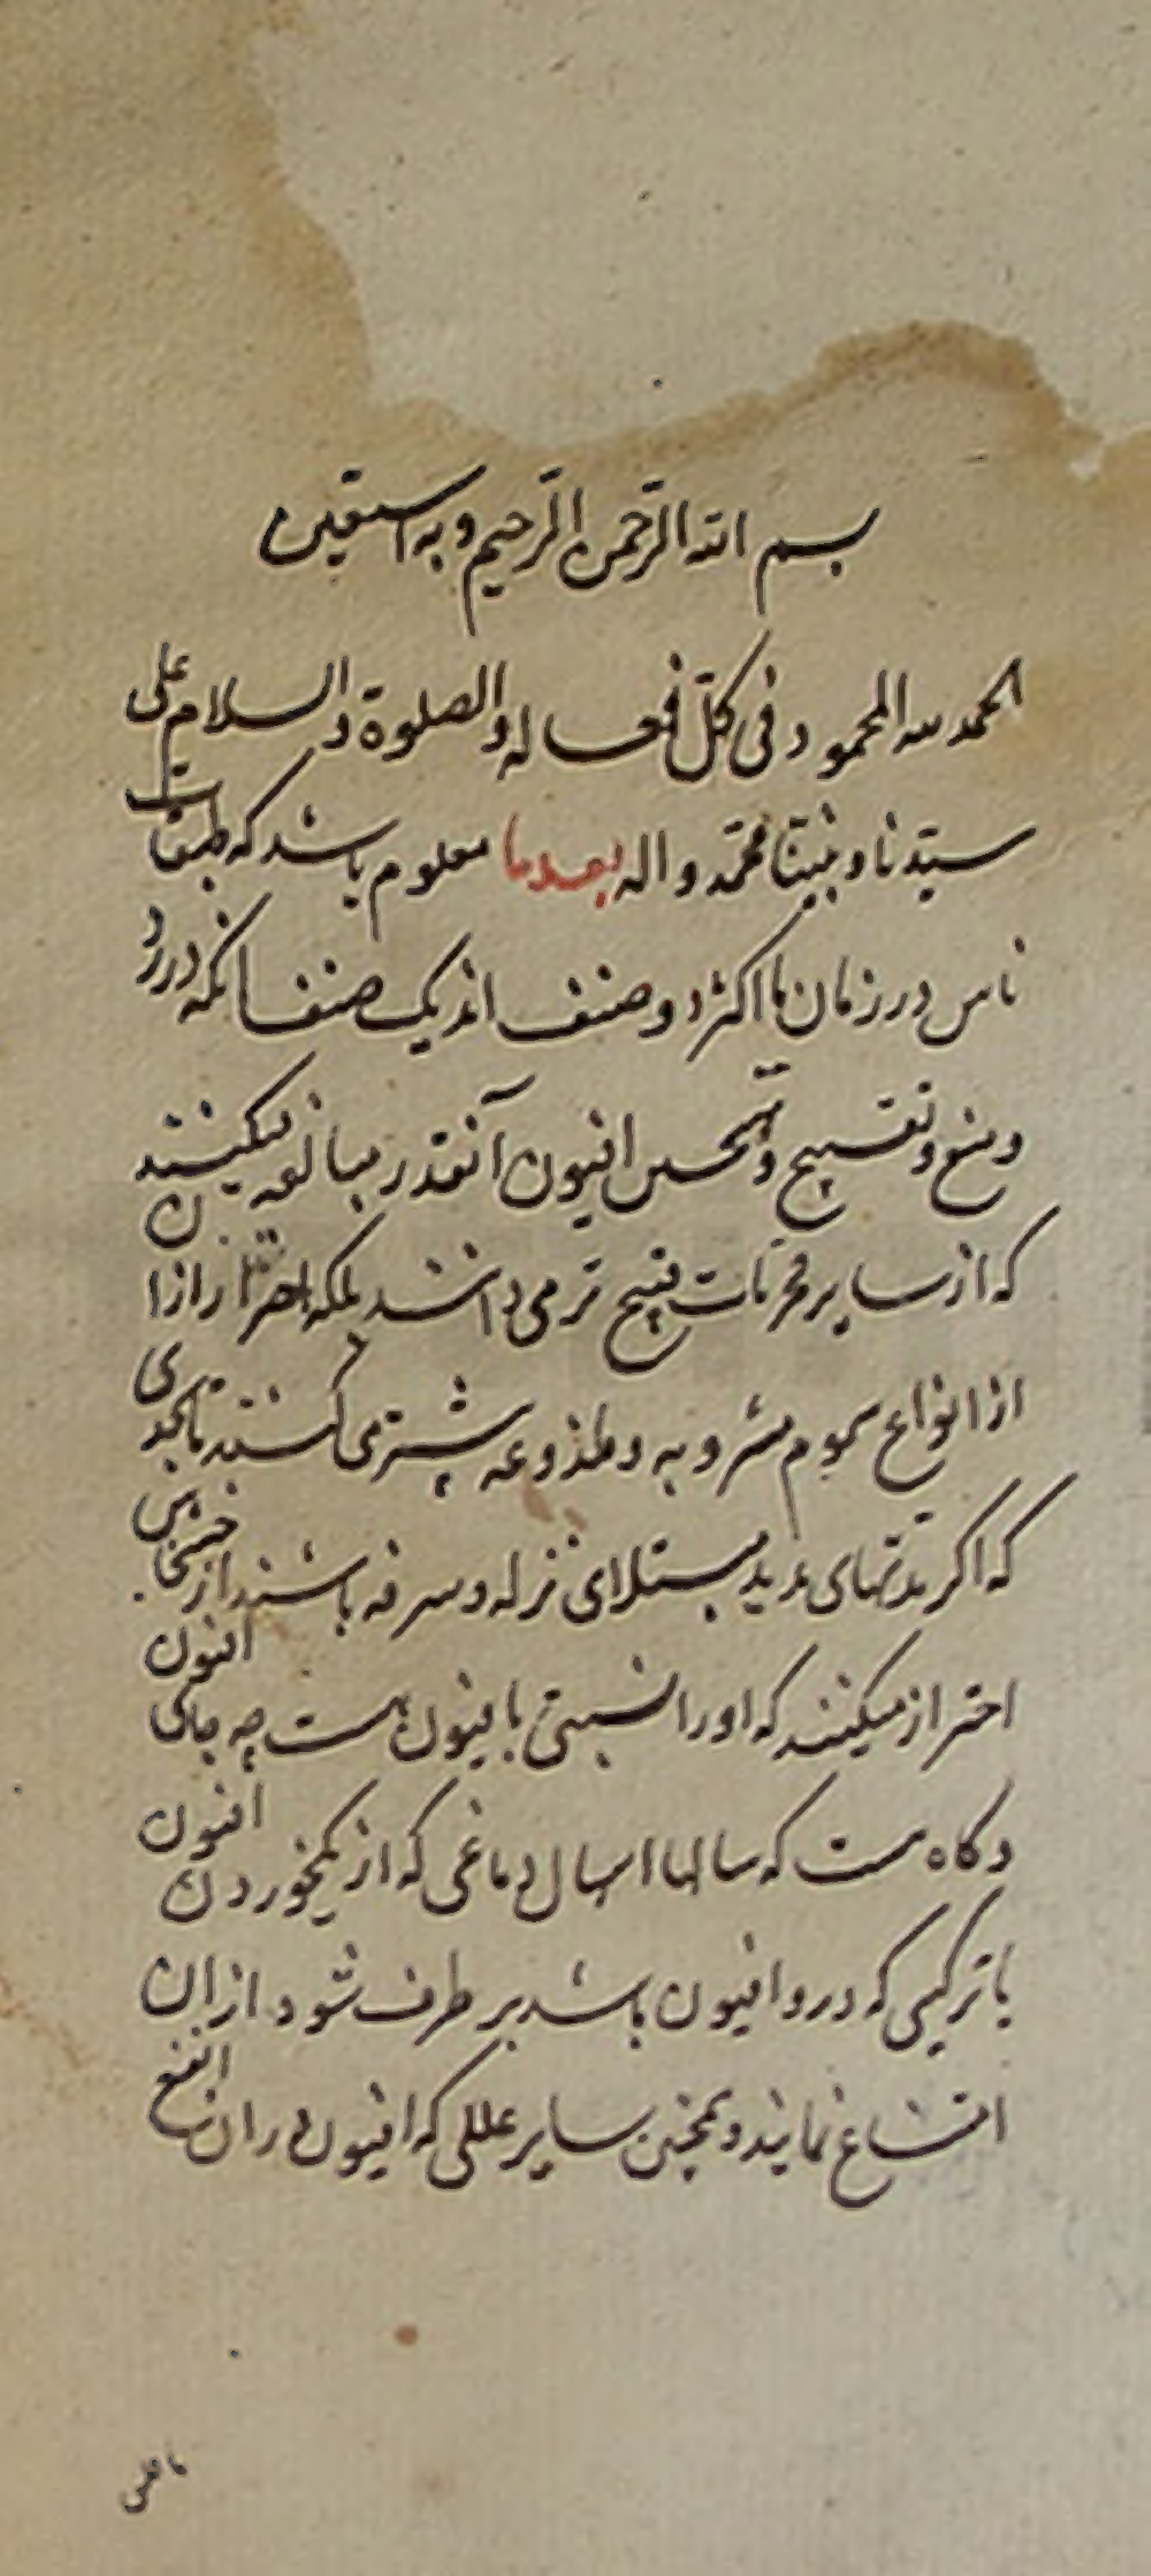 بسم الله الرحمن الرحیم و به استعین
الحمد لله المحمود فی کل فعاله و الصلوة و السلام علی
سیّدنا و نبیّنا محمّد و اله بعدها معلوم باشد که طبقات
ناس در زمان ما اکثر دو صنف اند یک صنف انکه در رد
و منع و تقبیح و افیون آنقدر مبالغه میکنند
که از سایر محرمات قبیح تر می دانند بلکه احتراز از ان
از انواع سموم مشروبه و ملذوعه پیشتر می کنند تا بحدی
که اکر مدتهای مدید مبتلای نزله و سرفه باشند از خشخاش
احتراز میکنند که او را نسبتی بافیون هست چه جای افیون
و کاه هست که سالها اسهال دماغی که از یکبار خوردن افیون
با ترکیبی که درو افیون باشد بر طرف شود از ان
امتناع نمایند و همچنین سایر عللی که افیون در ان انفع